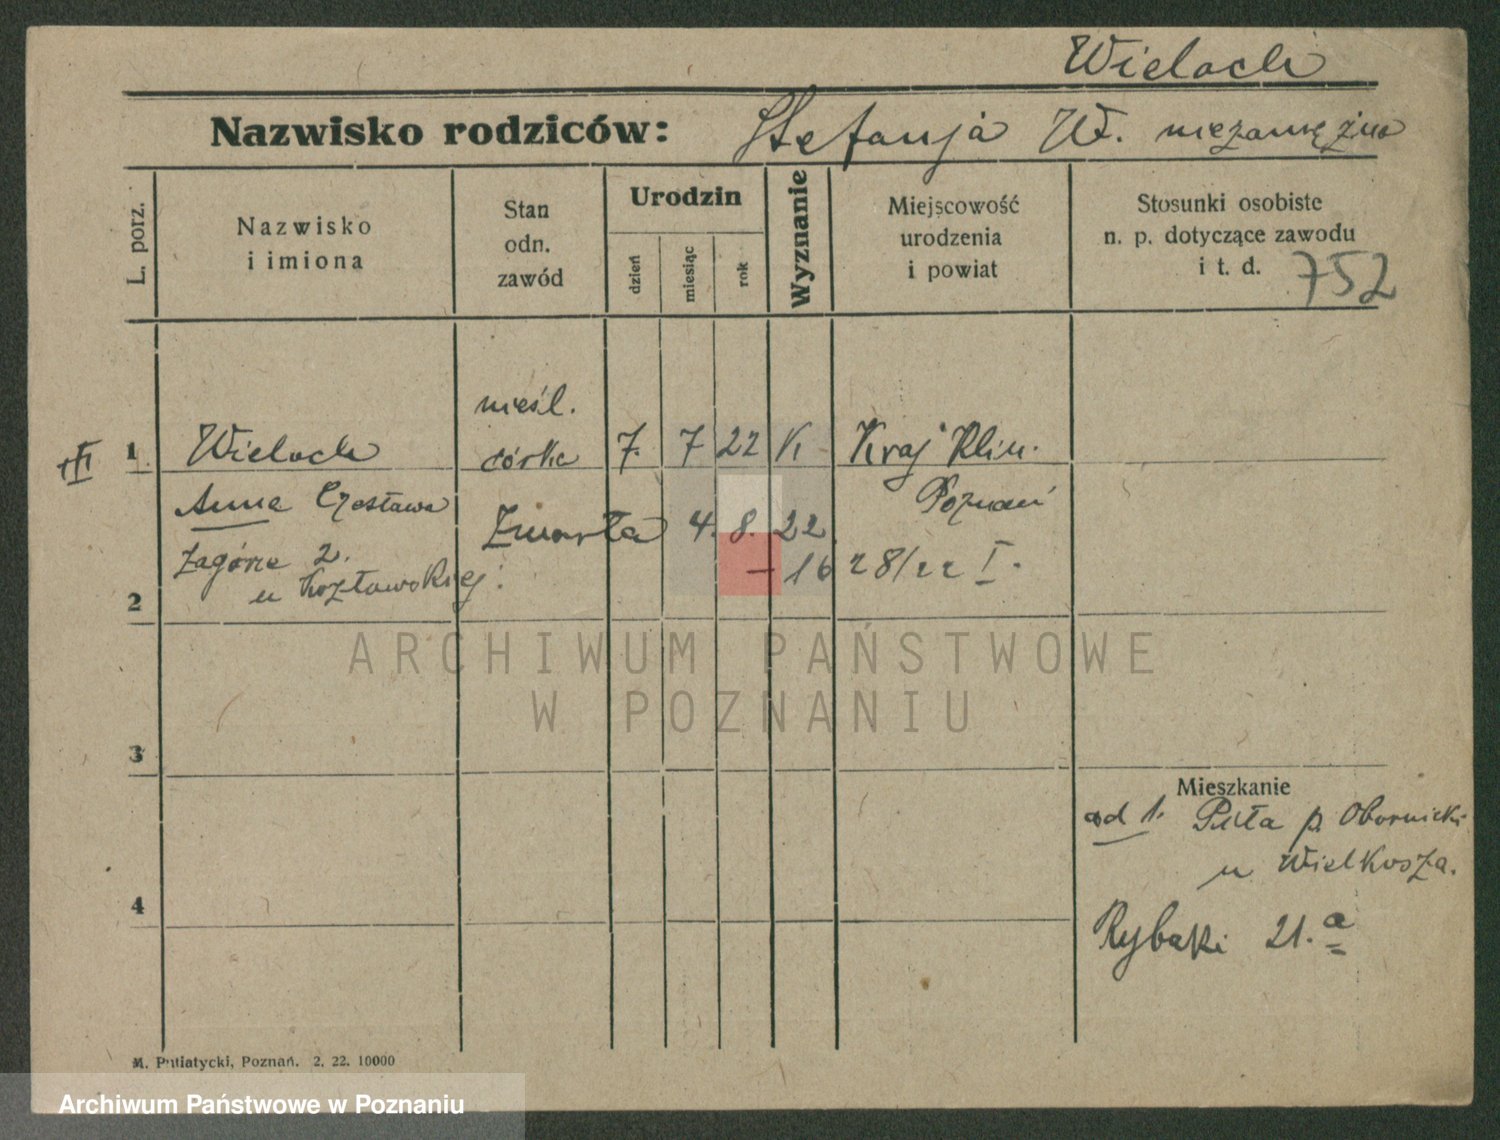 Wieloch
Nazwisko rodziców: Stefanja W. niezamężna
L. porz.
Nazwisko
i imiona
Stan
odn.
zawód
Urodzin
dzień
miesiąc
rok
Wyznanie
Miejscowość
urodzenia
i powiat
Stosunki osobiste
n. p. dotyczące zawodu
i t. d.
752
nieśl.
1 Wieloch córka 7. 7 22 K Kraj Klin.
Anna Czesława Poznań
Zmarła 4. 8. 22
Zagórze 2.
u Kozłowskiej.
– 16 28/22 I.
2
ARCHIWUM PAŃSTWOWE
W POZNANIU
3
Mieszkanie
od 1. Piła p. Obornicki
u Wielkosza.
4
Rybaki 21.a
M. Putiatycki, Poznań. 2. 22. 10000
Archiwum Państwowe w Poznaniu